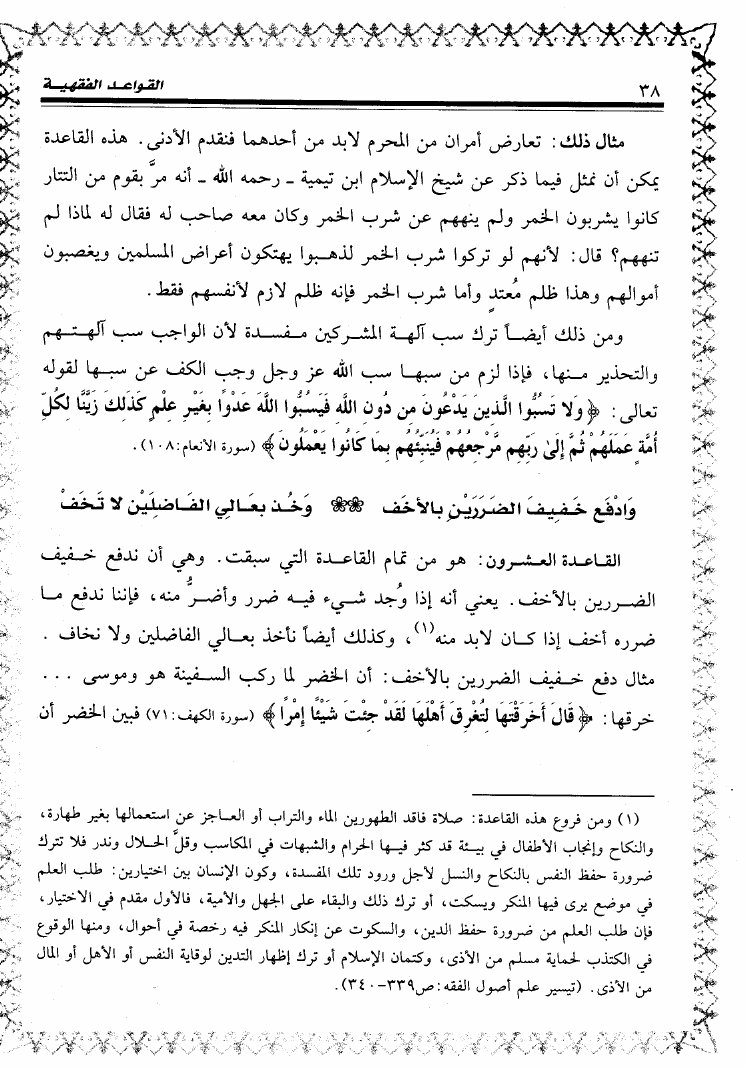 ٣٨
القواعد الفقهية
مثال ذلك: تعارض أمران من المحرم لابد من أحدهما فنقدم الأدنى. هذه القاعدة
يمكن أن نمثل فيما ذكر عن شيخ الإسلام ابن تيمية ـ رحمه الله ـ أنه مرَّ بقوم من التتار
كانوا يشربون الخمر ولم ينههم عن شرب الخمر وكان معه صاحب له فقال له لماذا لم
تنههم؟ قال: لأنهم لو تركوا شرب الخمر لذهبوا يهتكون أعراض المسلمين ويغصبون
أموالهم وهذا ظلم مُعتدٍ وأما شرب الخمر فإنه ظلم لازم لأنفسهم فقط.
ومن ذلك أيضاً ترك سب آلهة المشركين مفسدة لأن الواجب سب آلهتهم
والتحذير منها، فإذا لزم من سبها سب الله عز وجل وجب الكف عن سبها لقوله
تعالى: ﴿وَلا تَسُبُّوا الَّذِينَ يَدْعُونَ مِن دُونِ اللَّهِ فَيَسُبُّوا اللَّهَ عَدْوًا بِغَيْرِ عِلْمٍ كَذَلِكَ زَيَّنَّا لِكُلِّ
أُمَّةٍ عَمَلَهُمْ ثُمَّ إِلَىٰ رَبِّهِم مَّرْجِعُهُمْ فَيُنَبِّئُهُم بِمَا كَانُوا يَعْمَلُونَ﴾ (سورة الأنعام:١٠٨).
وَادْفَع خَفِيفَ الضرَرَيْنِ بالأخَف ❀❀ وَخُذ بعَالِي الفَاضلَيْن لا تَخَفْ
القاعدة العشرون: هو من تمام القاعدة التي سبقت. وهي أن ندفع خفيف
الضررين بالأخف. يعني أنه إذا وُجد شيء فيه ضرر وأضرُّ منه، فإننا ندفع ما
ضرره أخف إذا كان لابد منه(١)، وكذلك أيضاً نأخذ بعالي الفاضلين ولا نخاف.
مثال دفع خفيف الضررين بالأخف: أن الخضر لما ركب السفينة هو وموسى ...
خرقها: ﴿قَالَ أَخَرَقْتَهَا لِتُغْرِقَ أَهْلَهَا لَقَدْ جِئْتَ شَيْئًا إِمْرًا﴾ (سورة الكهف:٧١) فبين الخضر أن
(١) ومن فروع هذه القاعدة: صلاة فاقد الطهورين الماء والتراب أو العاجز عن استعمالها بغير طهارة،
والنكاح وإنجاب الأطفال في بيئة قد كثر فيها الحرام والشبهات في المكاسب وقلَّ الحلال وندر فلا تترك
ضرورة حفظ النفس بالنكاح والنسل لأجل ورود تلك المفسدة، وكون الإنسان بين اختيارين: طلب العلم
في موضع يرى فيها المنكر ويسكت، أو ترك ذلك والبقاء على الجهل والأمية، فالأول مقدم في الاختيار،
فإن طلب العلم من ضرورة حفظ الدين، والسكوت عن إنكار المنكر فيه رخصة في أحوال، ومنها الوقوع
في الكذب لحماية مسلم من الأذى، وكتمان الإسلام أو ترك إظهار التدين لوقاية النفس أو الأهل أو المال
من الأذى. (تيسير علم أصول الفقه:ص٣٣٩-٣٤٠).